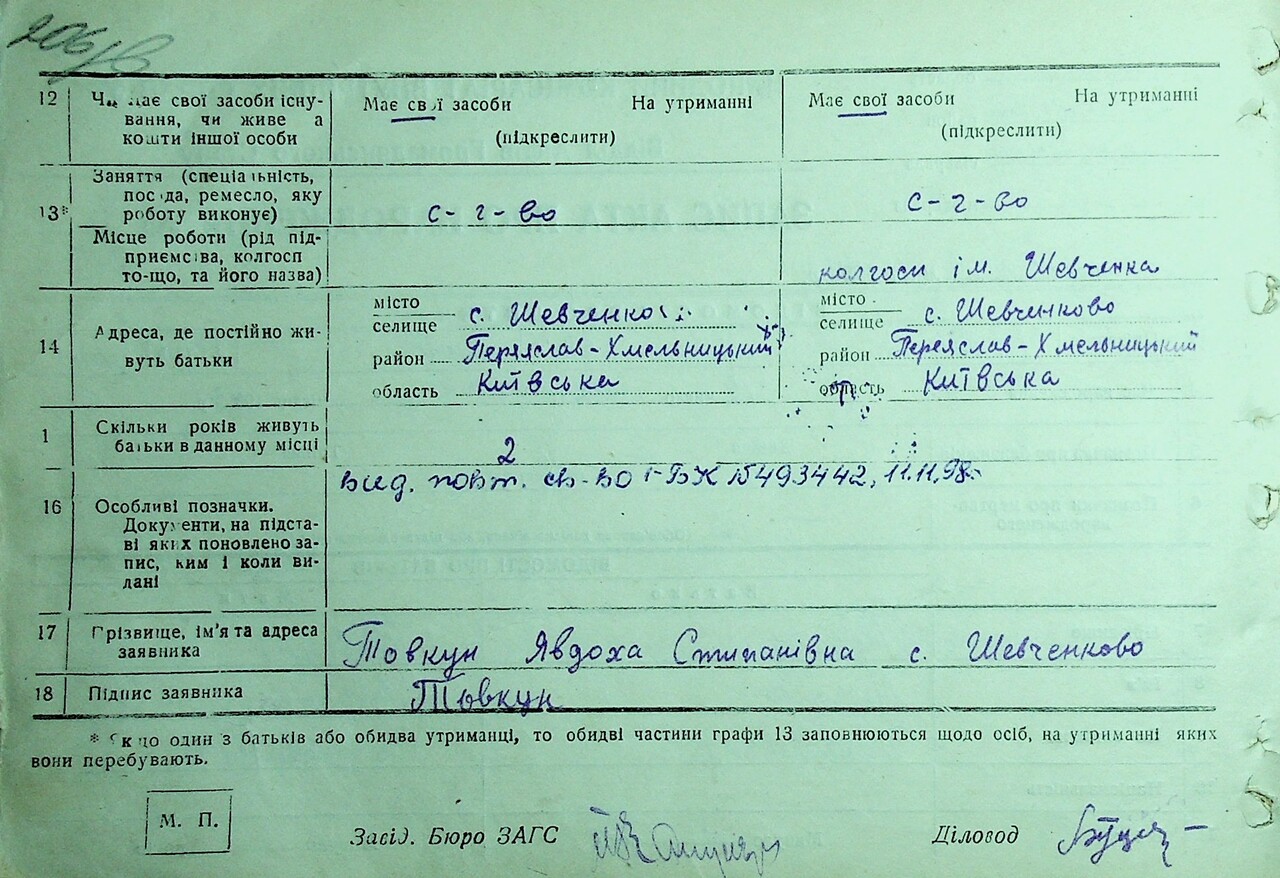 206/в
12 Чи має свої засоби існу- Має свої засоби На утриманні Має свої засоби На утриманні
вання, чи живе а (підкреслити) (підкреслити)
кошти іншої особи
13* Заняття (спеціальність,
посада, ремесло, яку
роботу виконує) с-г-во с-г-во
Місце роботи (рід під-
приємсва, колгосп
то-що, та його назва) колгосп ім. Шевченка
14 Адреса, де постійно жи-
вуть батьки
місто
селище с. Шевченко
район Переяслав-Хмельницький
область Київська
місто
селище с. Шевчинково
район Переяслав-Хмельницький
область Київська
1 Скільки років живуть
батьки в данному місці 2
16 Особливі позначки. вид. повт. св-во І-БК 15493442, 11.11.98.
Документи, на підста-
ві яких поновлено за-
пис, ким і коли ви-
лані
17 Прізвище, ім'я та адреса
заявника Товкун Явдоха Стипанівна с. Шевченково
18 Підпис заявника Товкун
* Якщо один з батьків або обидва утриманці, то обидві частини графи 13 заповнюються щодо осіб, на утриманні яких
вони перебувають.
М. П.
Завід. Бюро ЗАГС Діловод